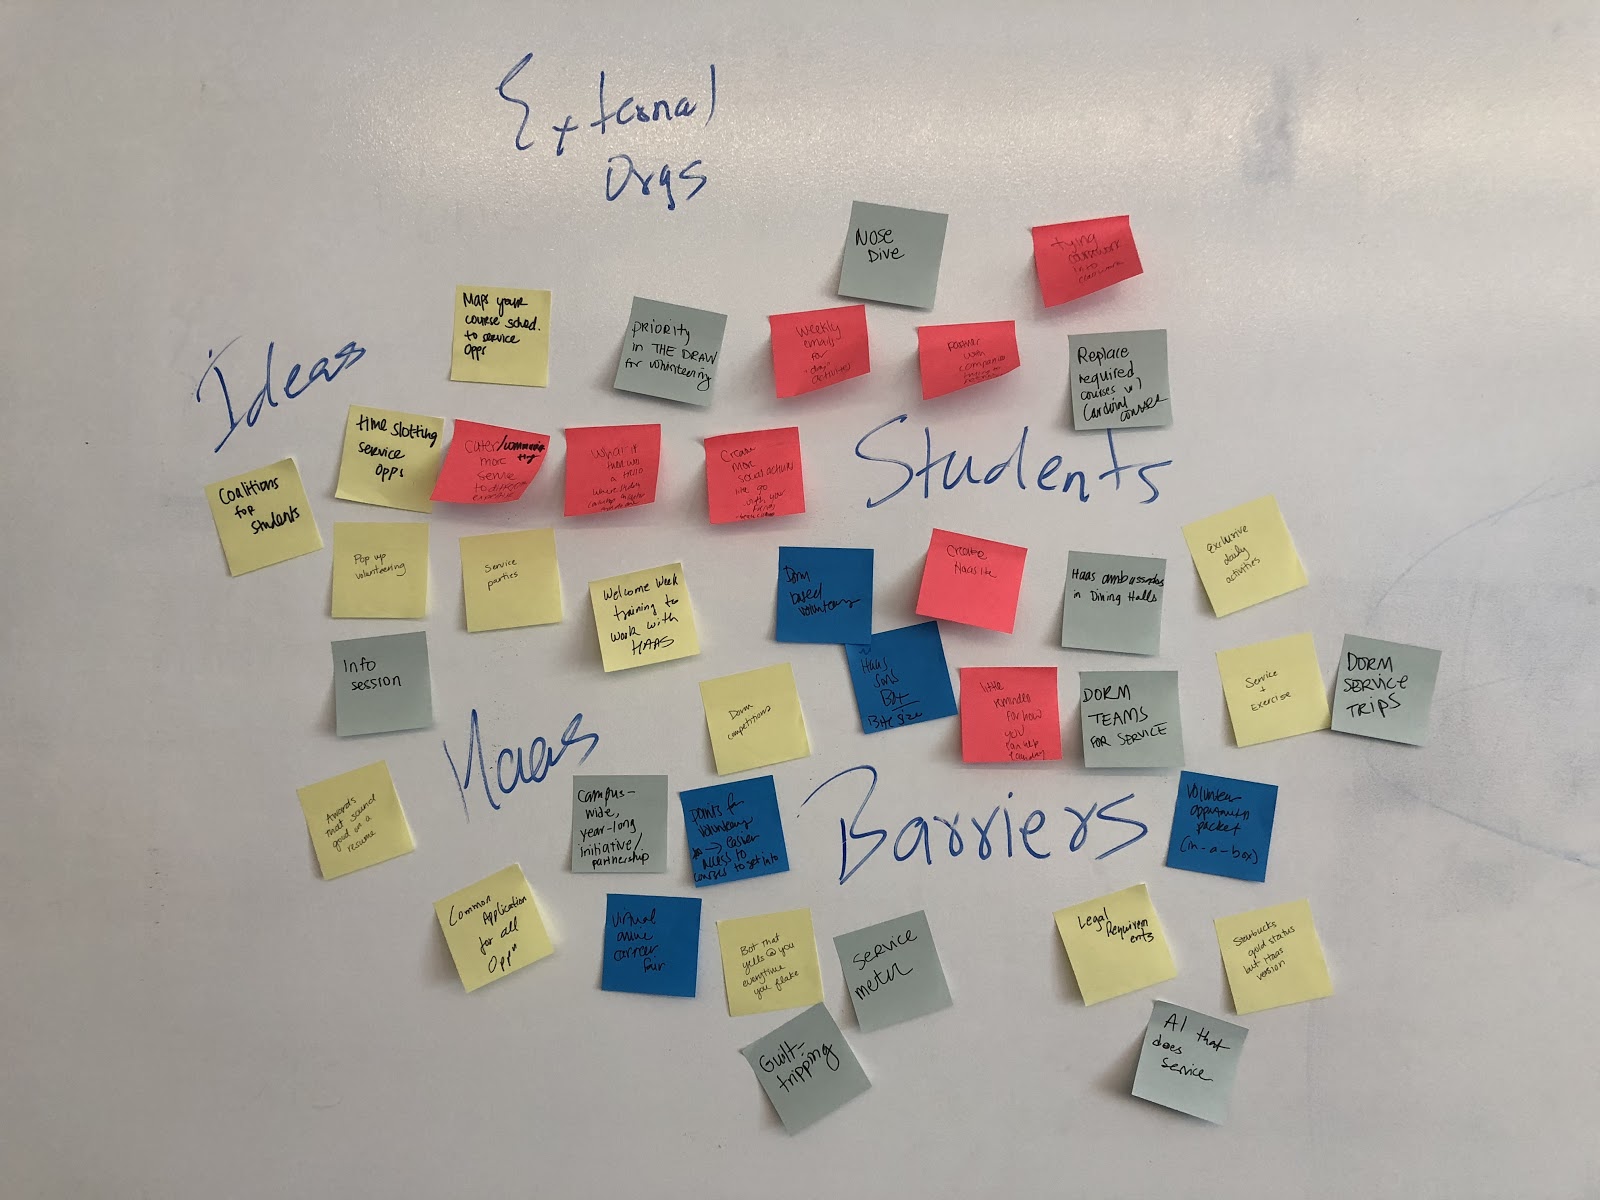 External
Orgs
Nose
Dive
tying
coursework
into
Maps your
course sched.
to service
opps
priority
in THE DRAW
for volunteering
Weekly
emails
for
activities
Partner
with
companies
Replace
required
courses w/
Cardinal courses
Ideas
Students
time slotting
service
opps
Cater/
more
service
to
What if
there was
a
where
Create
more
social
like go
with your
Coalitions
for
students
Pop up
volunteering
Service
parties
Welcome Week
training to
work with
HAAS
Dorm
based
volunteering
Create
Haas lite
Haas ambassadors
in Dining Halls
Exclusive
daily
activities
Info
session
Haas
Bot
Bite size
Dorm
competitions
little
reminders
for how
you
can help
DORM
TEAMS
FOR SERVICE
Service
+
Exercise
DORM
SERVICE
TRIPS
Haas
Barriers
Awards
that sound
good on a
resume
Campus-
wide,
year-long
initiative/
partnership
points for
volunteering
→ easier
access to
courses to get into
volunteer
opportunity
packet
(in-a-box)
Common
Application
for all
Opp"
virtual
career
fair
Bot that
yells @ you
everytime
you flake
service
meter
Legal
Requirem
ents
Starbucks
gold status
but Haas
version
Guilt-
tripping
AI that
does
service